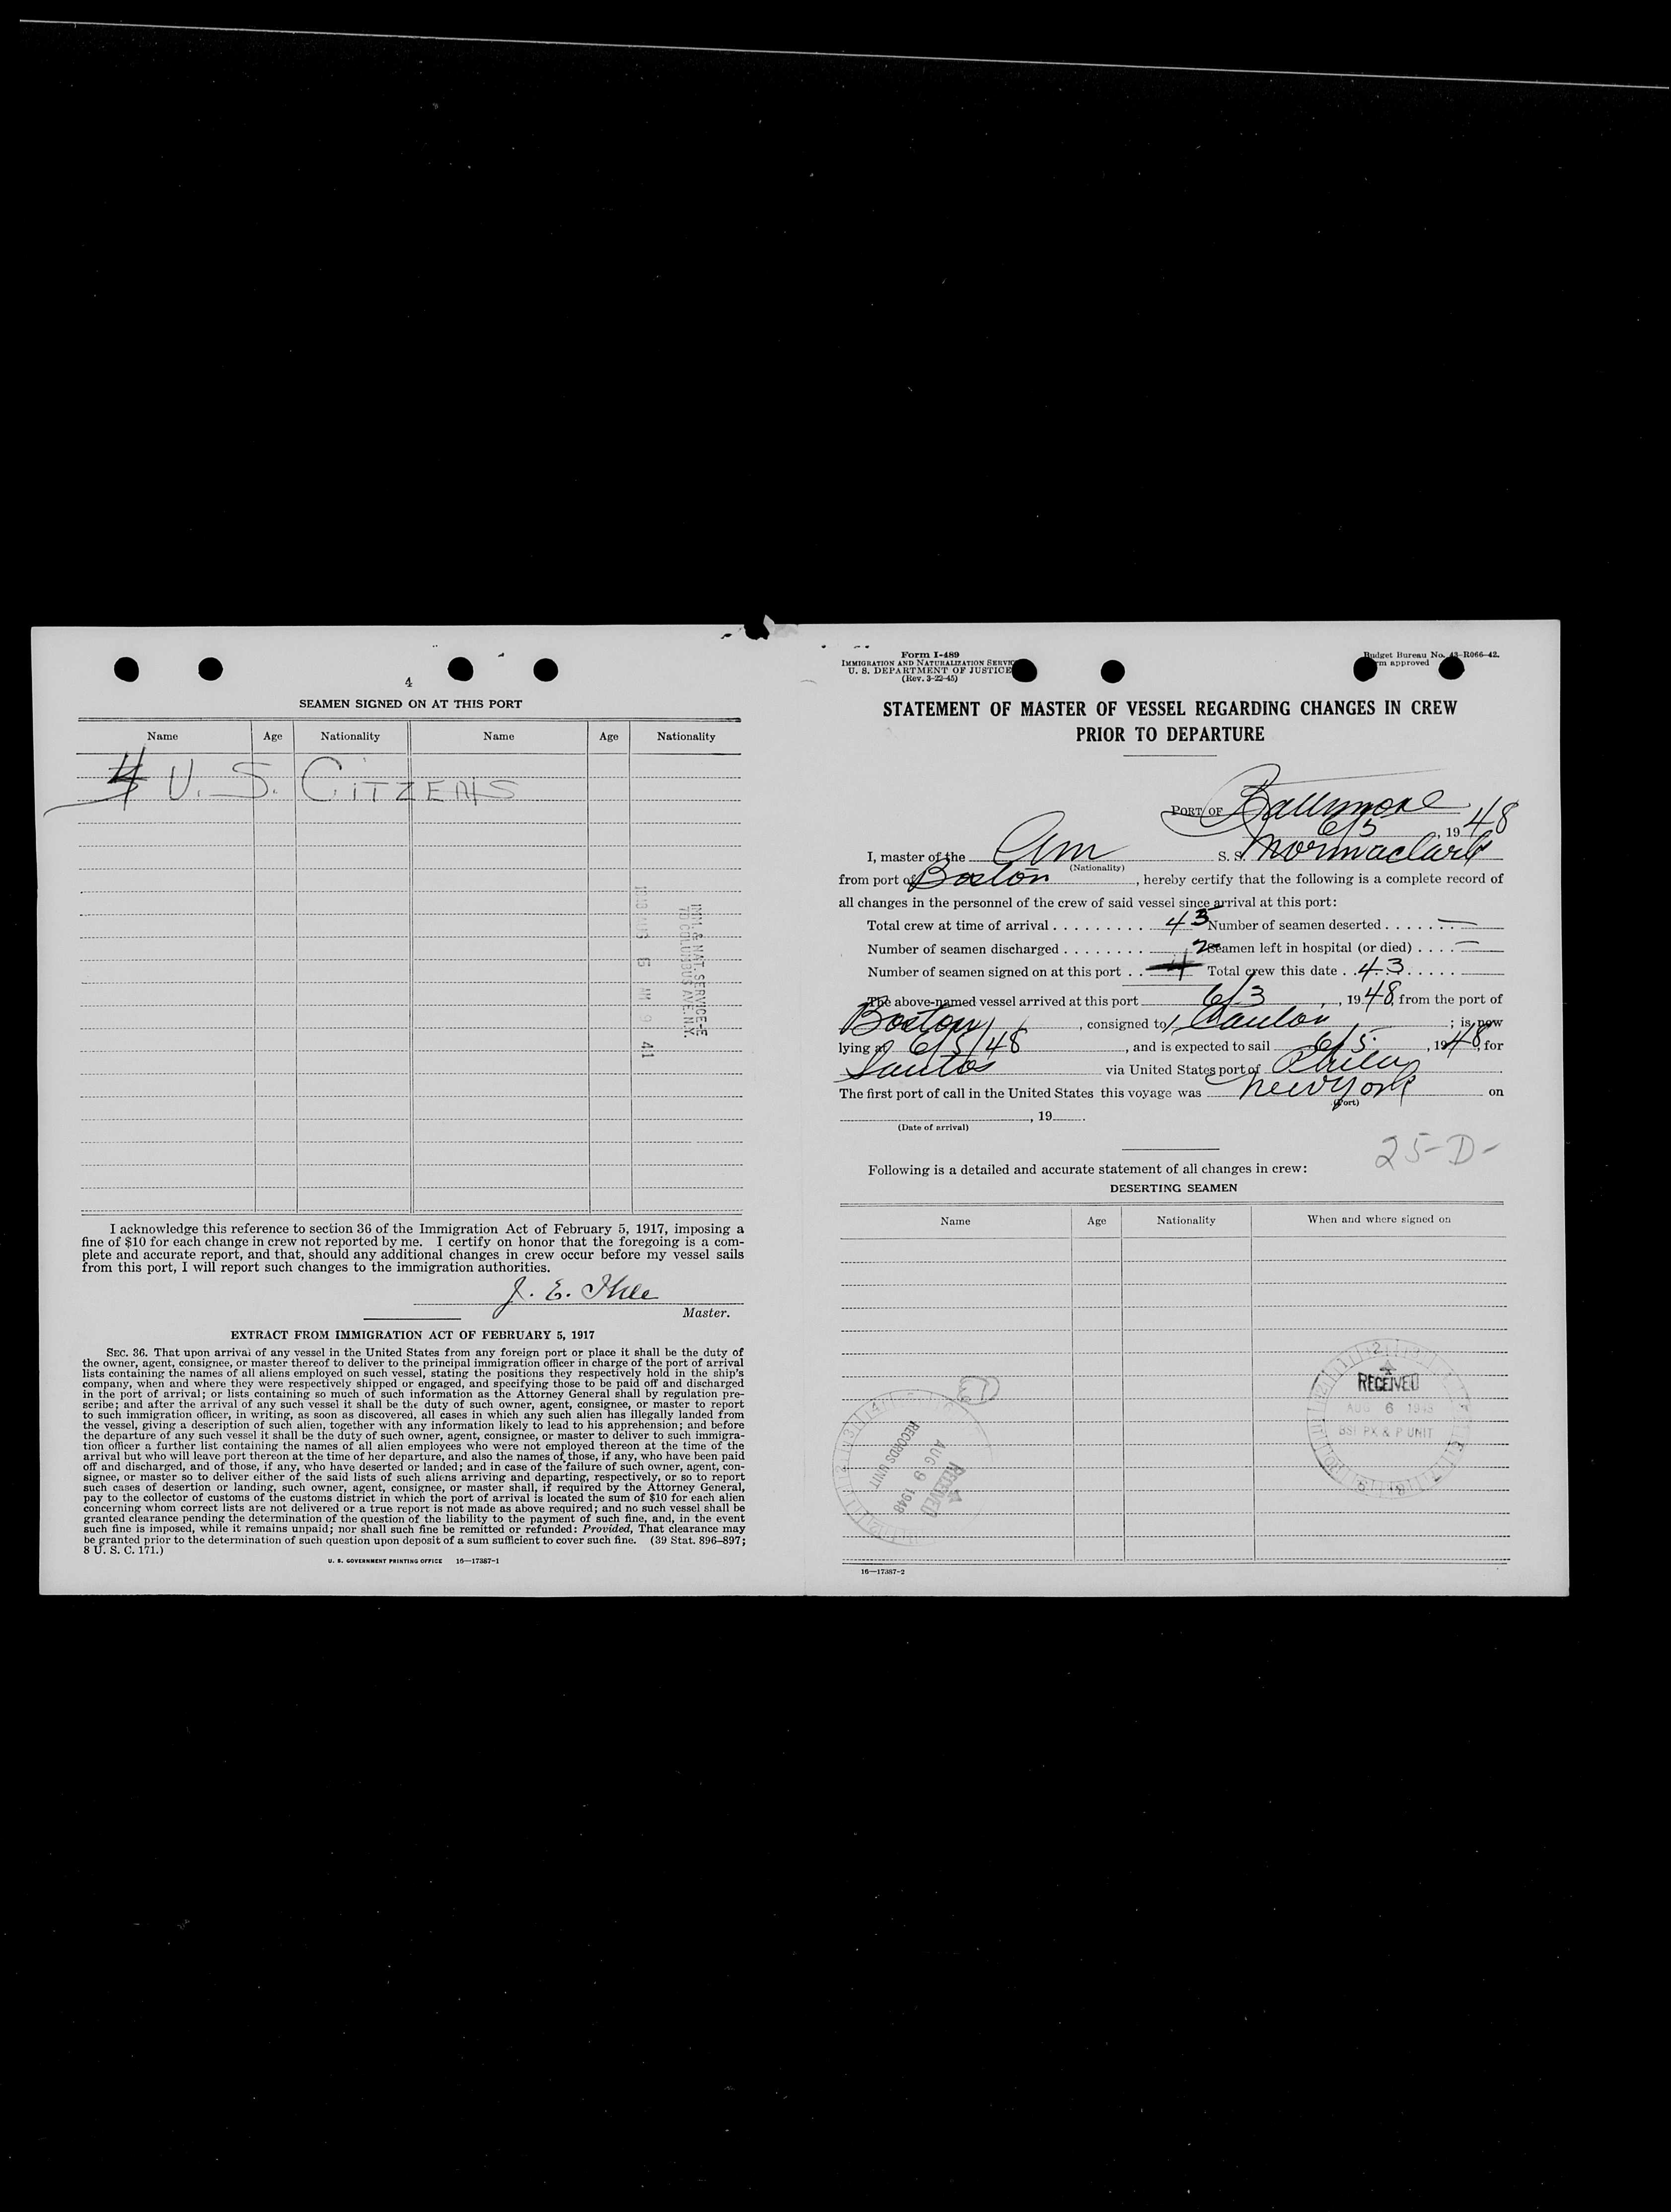 4
SEAMEN SIGNED ON AT THIS PORT
Name Age Nationality Name Age Nationality
4 U. S. CITZENS
IMM. & NAT. SERVICE-E
70 COLUMBUS AVE. N.Y.
6 AM 9 41
I acknowledge this reference to section 36 of the Immigration Act of February 5, 1917, imposing a
fine of $10 for each change in crew not reported by me. I certify on honor that the foregoing is a com-
plete and accurate report, and that, should any additional changes in crew occur before my vessel sails
from this port, I will report such changes to the immigration authorities.
J. E.
Master.
EXTRACT FROM IMMIGRATION ACT OF FEBRUARY 5, 1917
SEC. 36. That upon arrival of any vessel in the United States from any foreign port or place it shall be the duty of
the owner, agent, consignee, or master thereof to deliver to the principal immigration officer in charge of the port of arrival
lists containing the names of all aliens employed on such vessel, stating the positions they respectively hold in the ship's
company, when and where they were respectively shipped or engaged, and specifying those to be paid off and discharged
in the port of arrival; or lists containing so much of such information as the Attorney General shall by regulation pre-
scribe; and after the arrival of any such vessel it shall be the duty of such owner, agent, consignee, or master to report
to such immigration officer, in writing, as soon as discovered, all cases in which any such alien has illegally landed from
the vessel, giving a description of such alien, together with any information likely to lead to his apprehension; and before
the departure of any such vessel it shall be the duty of such owner, agent, consignee, or master to deliver to such immigra-
tion officer a further list containing the names of all alien employees who were not employed thereon at the time of the
arrival but who will leave port thereon at the time of her departure, and also the names of those, if any, who have been paid
off and discharged, and of those, if any, who have deserted or landed; and in case of the failure of such owner, agent, con-
signee, or master so to deliver either of the said lists of such aliens arriving and departing, respectively, or so to report
such cases of desertion or landing, such owner, agent, consignee, or master shall, if required by the Attorney General,
pay to the collector of customs of the customs district in which the port of arrival is located the sum of $10 for each alien
concerning whom correct lists are not delivered or a true report is not made as above required; and no such vessel shall be
granted clearance pending the determination of the question of the liability to the payment of such fine, and, in the event
such fine is imposed, while it remains unpaid; nor shall such fine be remitted or refunded: Provided, That clearance may
be granted prior to the determination of such question upon deposit of a sum sufficient to cover such fine. (39 Stat. 896–897;
8 U. S. C. 171.)
U. S. GOVERNMENT PRINTING OFFICE 16—17387-1
Form I-489
IMMIGRATION AND NATURALIZATION SERVICE
U. S. DEPARTMENT OF JUSTICE
(Rev. 3-22-45)
Budget Bureau No. 43-R066-42.
Form approved
STATEMENT OF MASTER OF VESSEL REGARDING CHANGES IN CREW
PRIOR TO DEPARTURE
PORT OF Baltimore
6/5, 1948
I, master of the Am S. S. Mormaclark
(Nationality)
from port of Boston, hereby certify that the following is a complete record of
all changes in the personnel of the crew of said vessel since arrival at this port:
Total crew at time of arrival . . . . . . . . . . 43 Number of seamen deserted . . . . . . —
Number of seamen discharged . . . . . . . . Seamen left in hospital (or died) . . . . —
Number of seamen signed on at this port . . 4 Total crew this date . . 43 . . . . .
The above-named vessel arrived at this port 6/3, 1948, from the port of
Boston, consigned to Canton; is now
lying at 6/5/48, and is expected to sail 6/5, 1948, for
Santos via United States port of Phila
The first port of call in the United States this voyage was New York on
(Port)
, 19
(Date of arrival)
25-D-
Following is a detailed and accurate statement of all changes in crew:
DESERTING SEAMEN
Name Age Nationality When and where signed on
RECEIVED
AUG 6 1948
BSI PX & P UNIT
RECEIVED
AUG 9 1948
RECORDS UNIT
16—17387-2